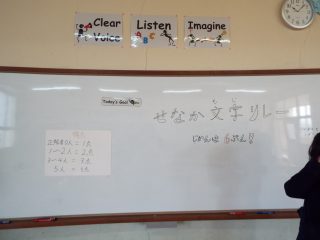 Clear
Voice
Listen
ABC
Imagine
Today's Goal
せなか文字リレー
もじ
じかんは6ぷん!
正解者0人=1点
1~2人=2点
3~4人=3点
5人=5点